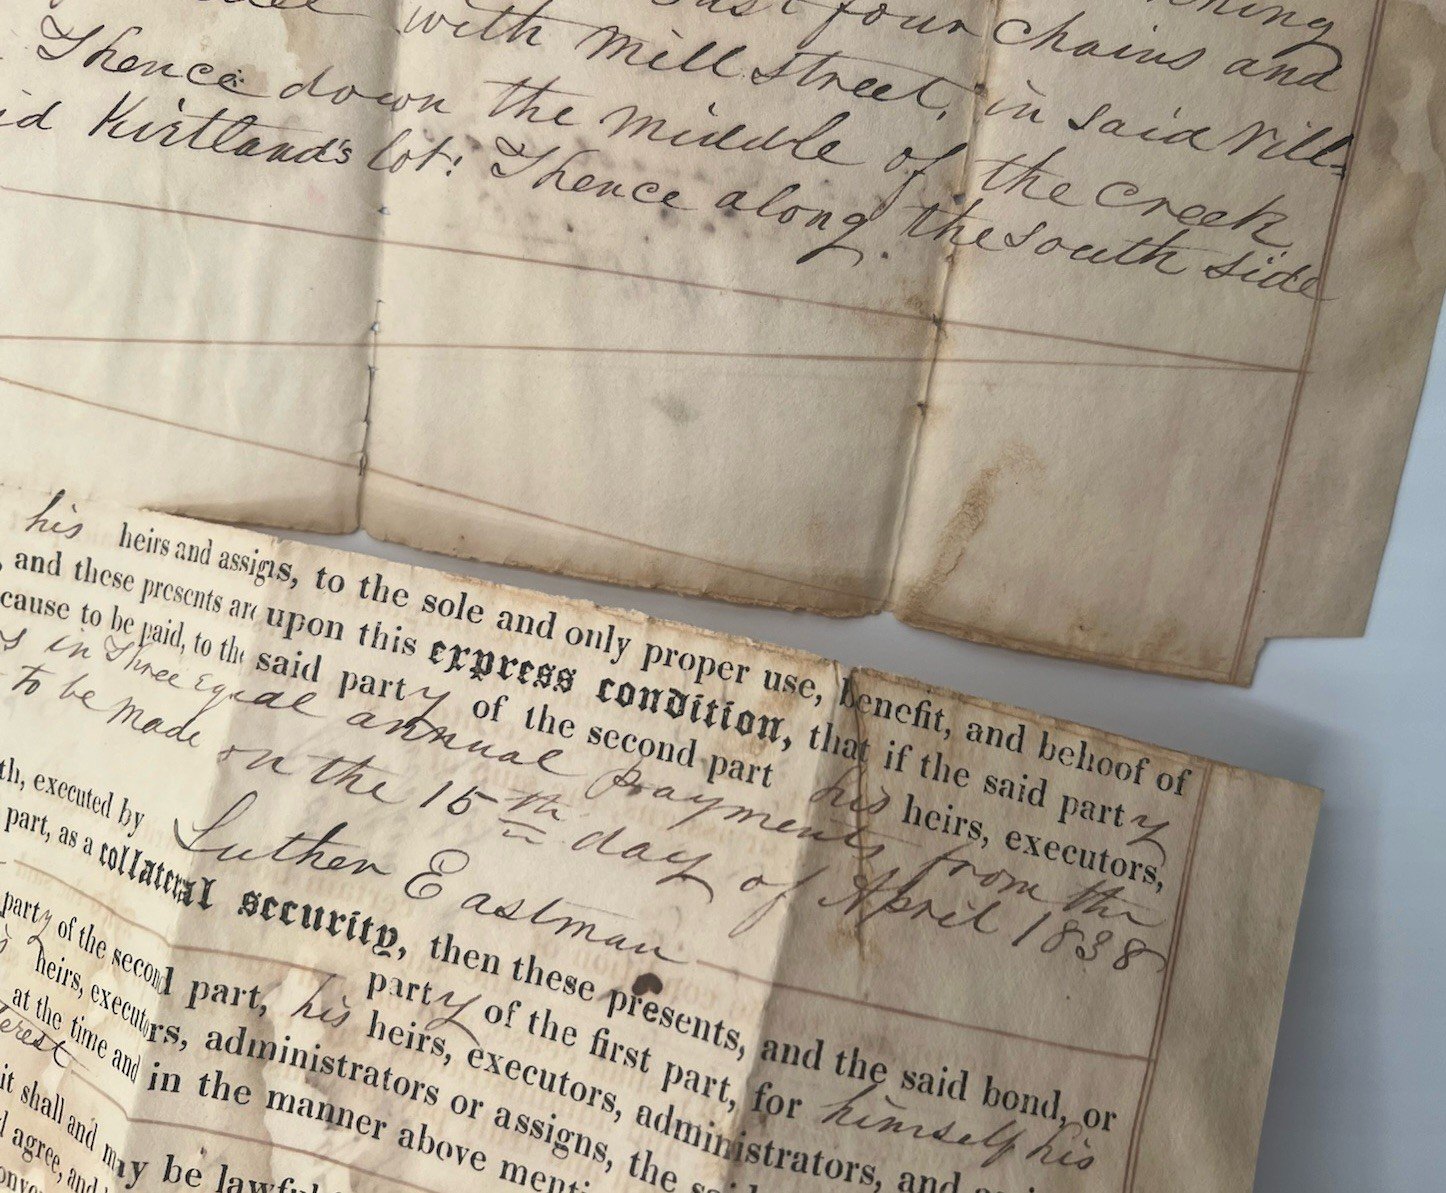 East four chains and
with Mill Street, in said Vill=
Thence down the middle of the Creek
Kirtland's lot: Thence along the South Side
his heirs and assigns, to the sole and only proper use, benefit, and behoof of
, and these presents are upon this express condition, that if the said party
cause to be paid, to the said party of the second part his heirs, executors,
in Three Equal annual payments from the
to be made on the 15th day of April 1838
th, executed by Luther Eastman
part, as a collateral security, then these presents, and the said bond, or
party of the second part, his party of the first part, for himself his
heirs, executors, administrators or assigns, the
heirs, executors, administrators, and
at the time and in the manner above
it shall and may be
agree, and